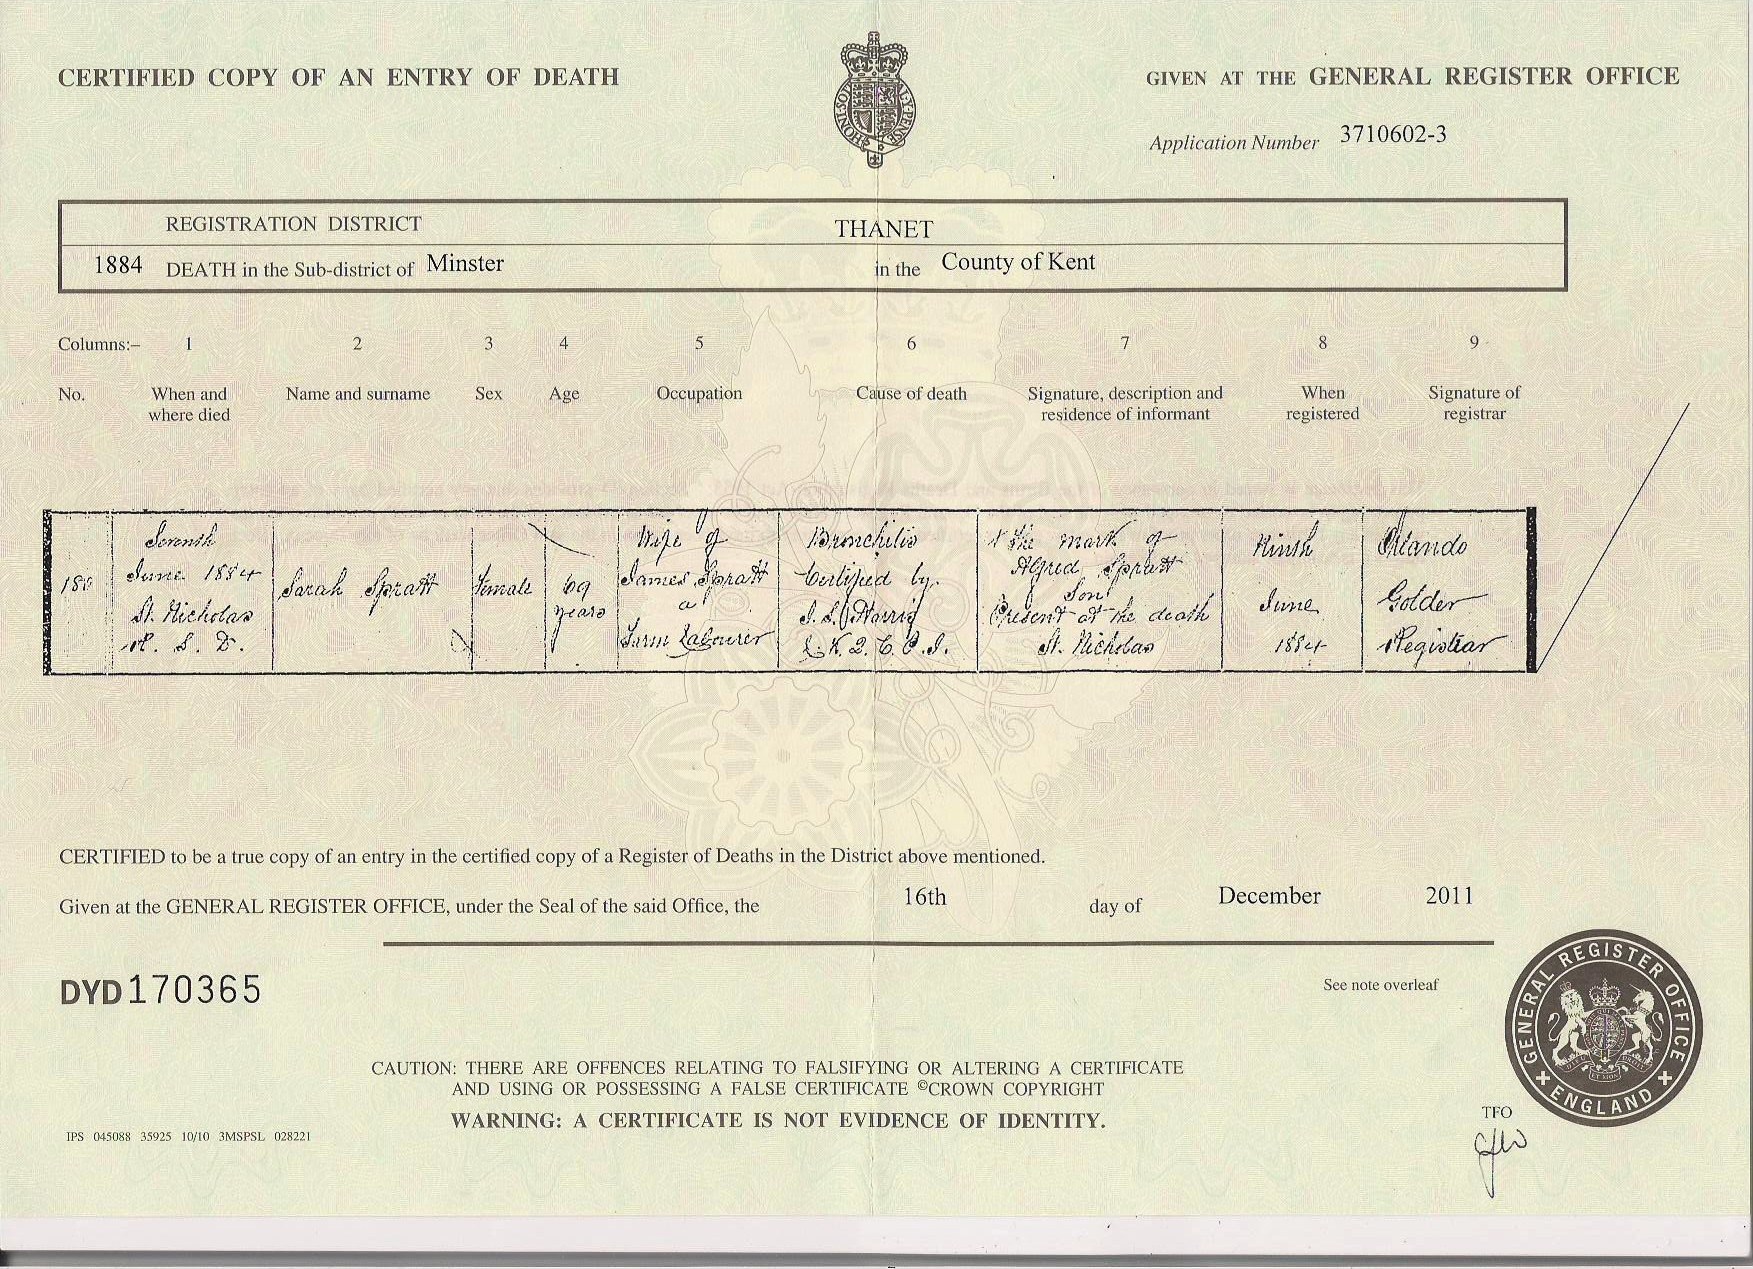 CERTIFIED COPY OF AN ENTRY OF DEATH
GIVEN AT THE GENERAL REGISTER OFFICE
Application Number 3710602-3
REGISTRATION DISTRICT THANET
1884 DEATH in the Sub-district of Minster in the County of Kent
Columns:– 1 2 3 4 5 6 7 8 9
No. When and where died Name and surname Sex Age Occupation Cause of death Signature, description and residence of informant When registered Signature of registrar
Seventh
June 1884
St. Nicholas
R. S. D.
Sarah Spratt
Female
69
years
Wife of
James Spratt
a
Farm Labourer
Bronchitis
Certified by
L. K. Q. C. P. I.
X The mark of
Alfred Spratt
Son
Present at the death
St. Nicholas
Ninth
June
1884
Orlando
Golder
Registrar
CERTIFIED to be a true copy of an entry in the certified copy of a Register of Deaths in the District above mentioned.
Given at the GENERAL REGISTER OFFICE, under the Seal of the said Office, the 16th day of December 2011
DYD 170365
See note overleaf
GENERAL REGISTER OFFICE
ENGLAND
CAUTION: THERE ARE OFFENCES RELATING TO FALSIFYING OR ALTERING A CERTIFICATE
AND USING OR POSSESSING A FALSE CERTIFICATE ©CROWN COPYRIGHT
WARNING: A CERTIFICATE IS NOT EVIDENCE OF IDENTITY.
TFO
IPS 045088 35925 10/10 3MSPSL 028221